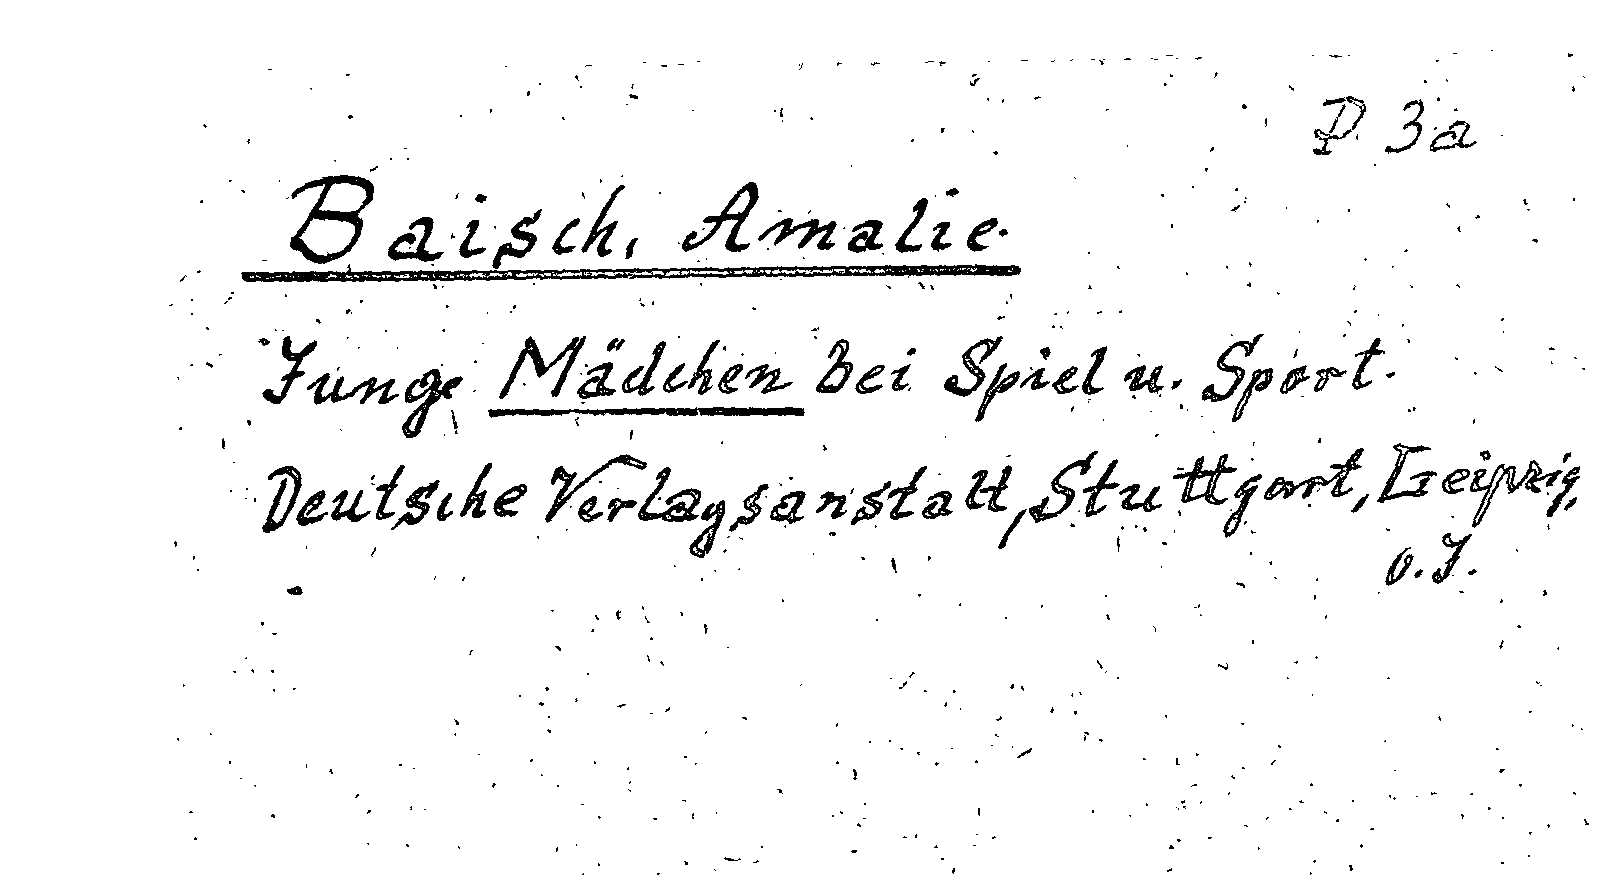 P 3a
Baisch, Amalie.
Junge Mädchen bei Spiel u. Sport.
Deutsche Verlagsanstalt, Stuttgart, Leipzig,
o.J.